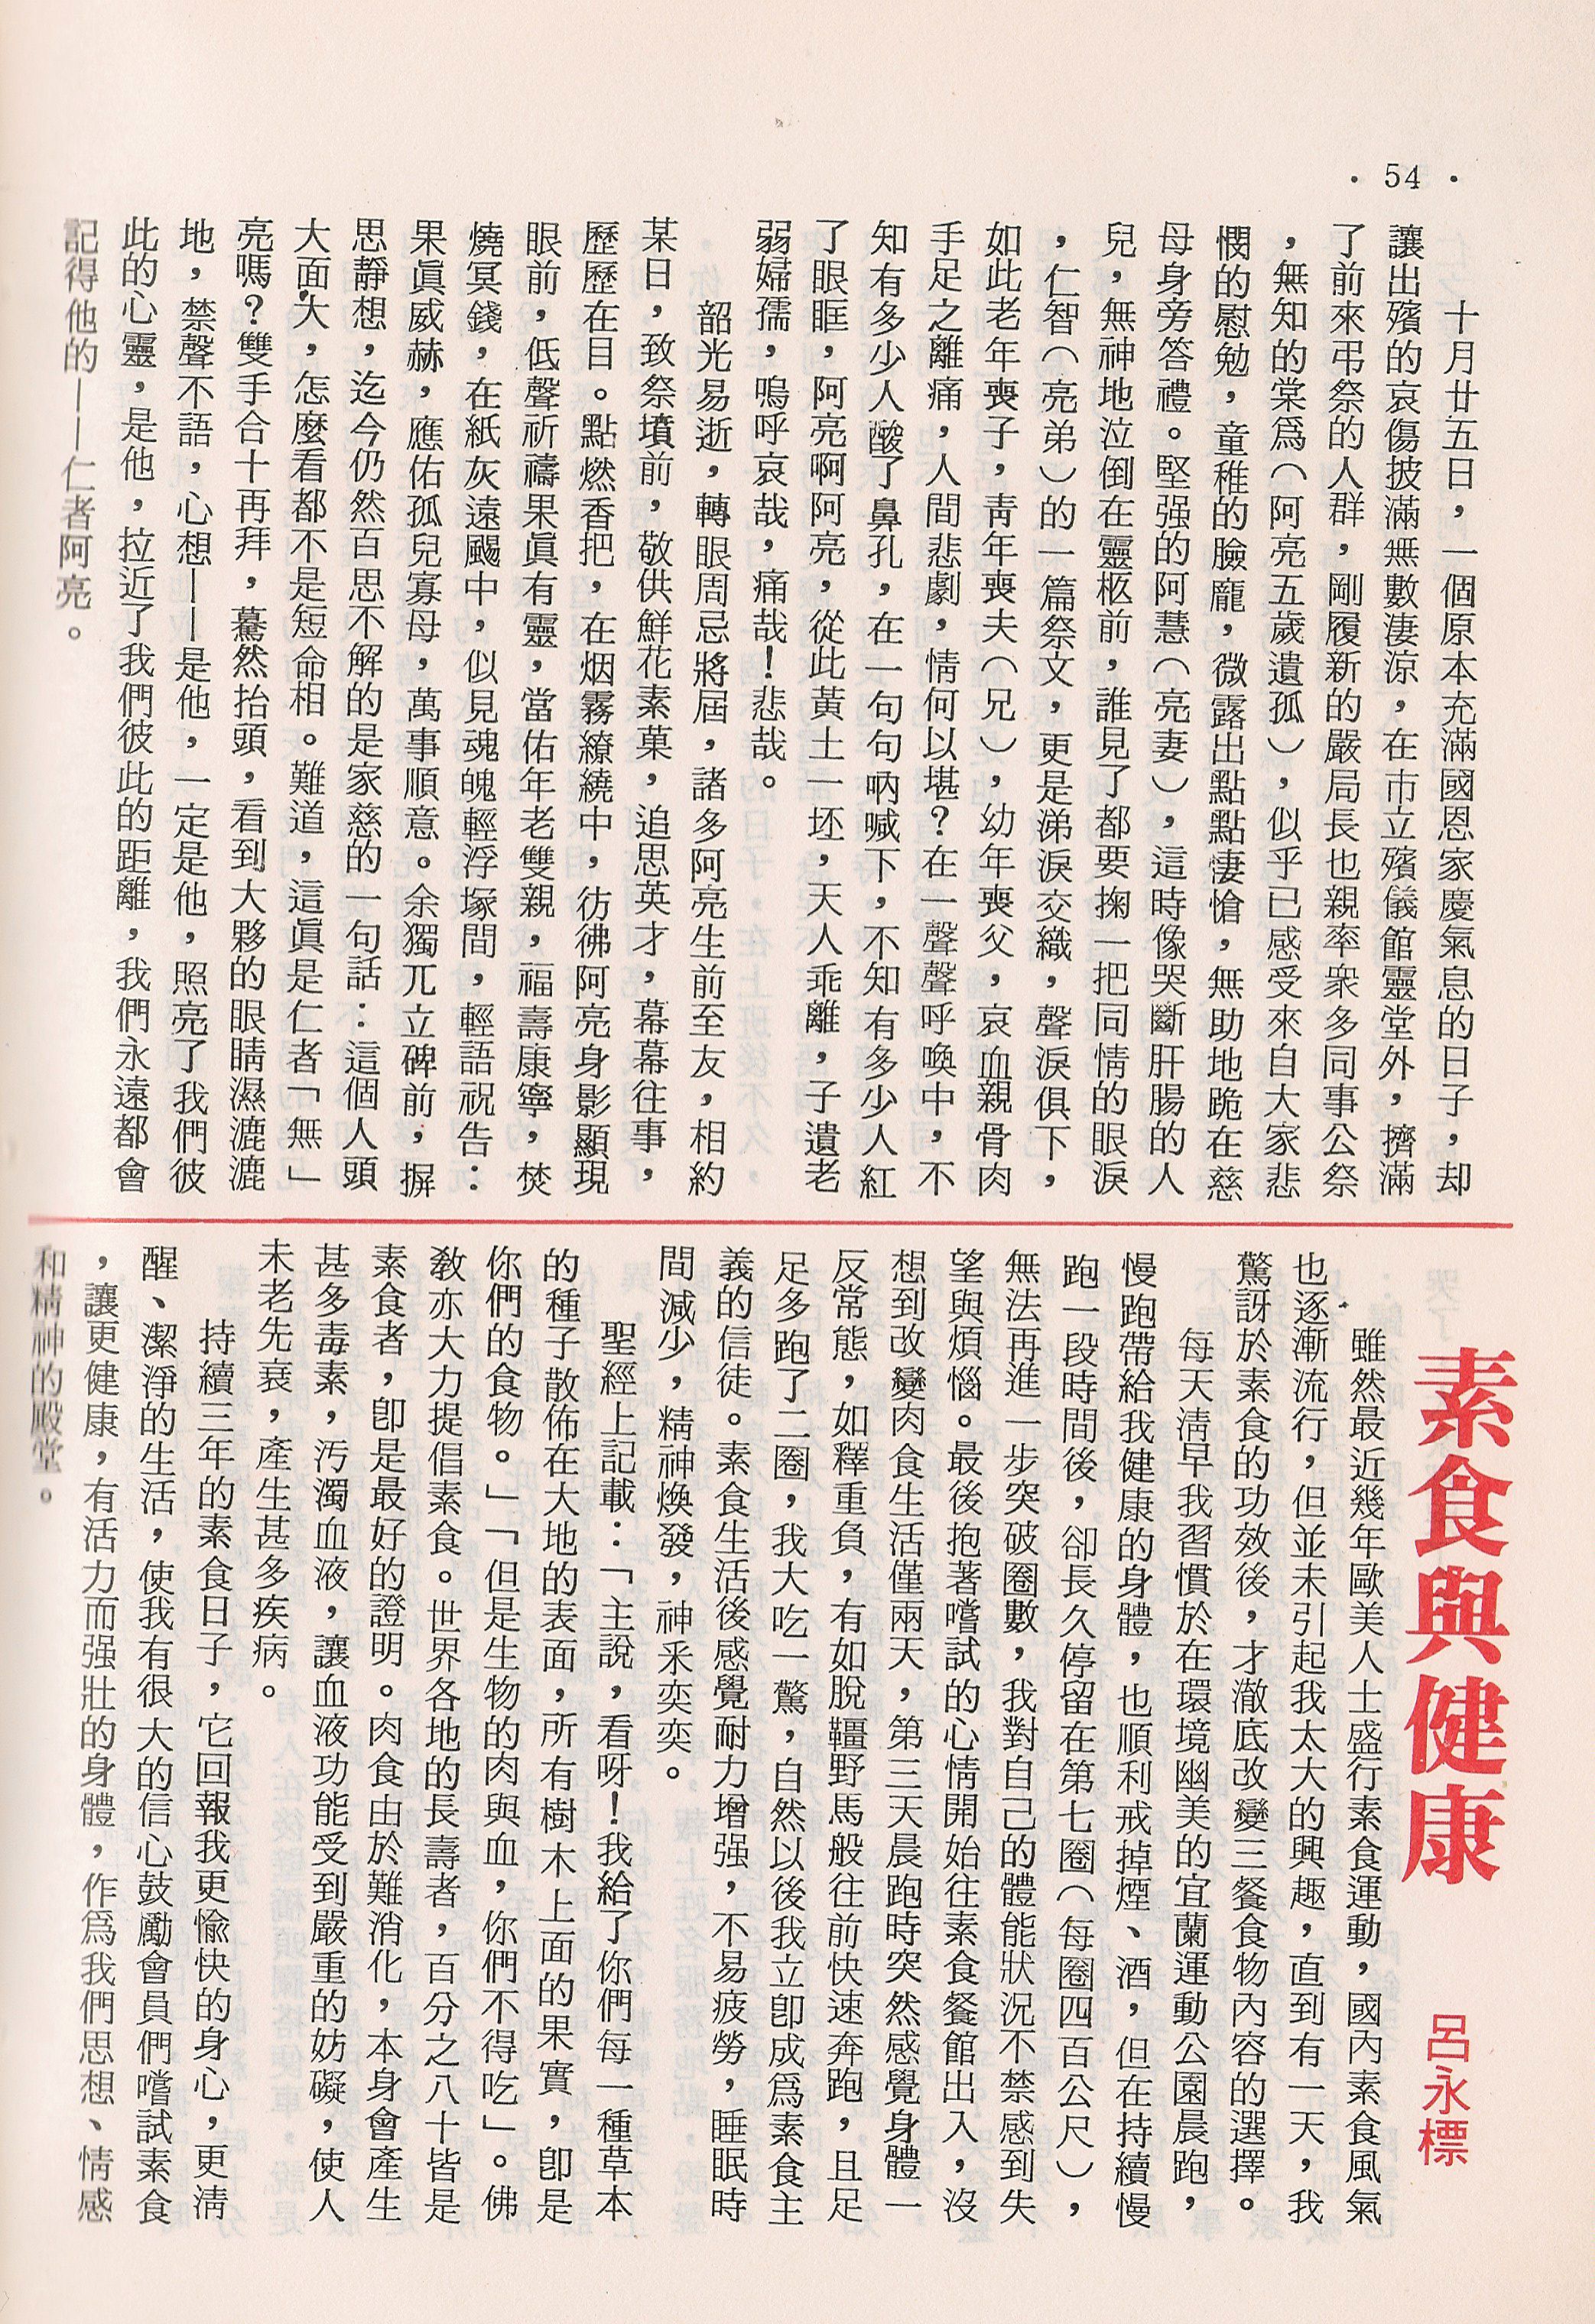 · 54 ·
十月廿五日，一個原本充滿國恩家慶氣息的日子，却
讓出殯的哀傷披滿無數淒涼，在市立殯儀館靈堂外，擠滿
了前來弔祭的人群，剛履新的嚴局長也親率衆多同事公祭
，無知的棠爲（阿亮五歲遺孤），似乎已感受來自大家悲
憫的慰勉，童稚的臉龐，微露出點點悽愴，無助地跪在慈
母身旁答禮。堅强的阿慧（亮妻），這時像哭斷肝腸的人
兒，無神地泣倒在靈柩前，誰見了都要掬一把同情的眼淚
，仁智（亮弟）的一篇祭文，更是涕淚交織，聲淚俱下，
如此老年喪子，靑年喪夫（兄），幼年喪父，哀血親骨肉
手足之離痛，人間悲劇，情何以堪？在一聲聲呼喚中，不
知有多少人酸了鼻孔，在一句句吶喊下，不知有多少人紅
了眼眶，阿亮啊阿亮，從此黃土一坯，天人乖離，子遺老
弱婦孺，嗚呼哀哉，痛哉！悲哉。
韶光易逝，轉眼周忌將屆，諸多阿亮生前至友，相約
某日，致祭墳前，敬供鮮花素菓，追思英才，幕幕往事，
歷歷在目。點燃香把，在烟霧繚繞中，彷彿阿亮身影顯現
眼前，低聲祈禱果眞有靈，當佑年老雙親，福壽康寧，焚
燒冥錢，在紙灰遠颺中，似見魂魄輕浮塚間，輕語祝告：
果眞威赫，應佑孤兒寡母，萬事順意。余獨兀立碑前，摒
思靜想，迄今仍然百思不解的是家慈的一句話：這個人頭
大面大，怎麼看都不是短命相。難道，這眞是仁者「無」
亮嗎？雙手合十再拜，驀然抬頭，看到大夥的眼睛濕漉漉
地，禁聲不語，心想——是他，一定是他，照亮了我們彼
此的心靈，是他，拉近了我們彼此的距離，我們永遠都會
記得他的——仁者阿亮。
素食與健康
呂永標
雖然最近幾年歐美人士盛行素食運動，國內素食風氣
也逐漸流行，但並未引起我太大的興趣，直到有一天，我
驚訝於素食的功效後，才澈底改變三餐食物內容的選擇。
每天淸早我習慣於在環境幽美的宜蘭運動公園晨跑，
慢跑帶給我健康的身體，也順利戒掉煙、酒，但在持續慢
跑一段時間後，卻長久停留在第七圈（每圈四百公尺），
無法再進一步突破圈數，我對自己的體能狀況不禁感到失
望與煩惱。最後抱著嚐試的心情開始往素食餐館出入，沒
想到改變肉食生活僅兩天，第三天晨跑時突然感覺身體一
反常態，如釋重負，有如脫韁野馬般往前快速奔跑，且足
足多跑了二圈，我大吃一驚，自然以後我立卽成爲素食主
義的信徒。素食生活後感覺耐力增强，不易疲勞，睡眠時
間減少，精神煥發，神釆奕奕。
聖經上記載：「主說，看呀！我給了你們每一種草本
的種子散佈在大地的表面，所有樹木上面的果實，卽是
你們的食物。」「但是生物的肉與血，你們不得吃」。佛
敎亦大力提倡素食。世界各地的長壽者，百分之八十皆是
素食者，卽是最好的證明。肉食由於難消化，本身會產生
甚多毒素，汚濁血液，讓血液功能受到嚴重的妨礙，使人
未老先衰，產生甚多疾病。
持續三年的素食日子，它回報我更愉快的身心，更淸
醒、潔淨的生活，使我有很大的信心鼓勵會員們嚐試素食
，讓更健康，有活力而强壯的身體，作爲我們思想、情感
和精神的殿堂。